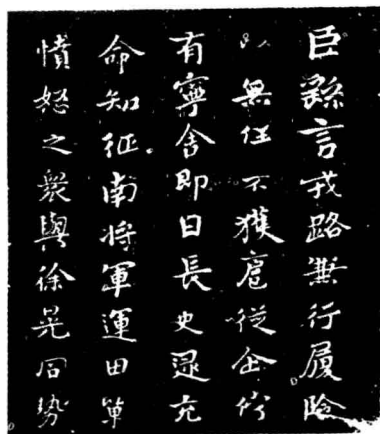 臣繇言戎路兼行履險
以無任不獲扈從企佇
有寧舍即日長史逯充
命知征南將軍運田單
憤怒之衆與徐晃同勢